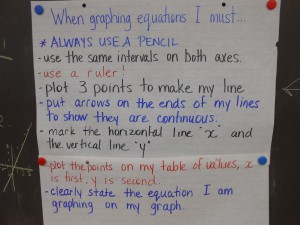 When graphing equations I must...
* ALWAYS USE A PENCIL
- use the same intervals on both axes.
- use a ruler!
- plot 3 points to make my line
- put arrows on the ends of my lines
to show they are continuous.
- mark the horizontal line "x" and
the vertical line "y"
- plot the points on my table of values, x
is first, y is second.
- clearly state the equation I am
graphing on my graph.